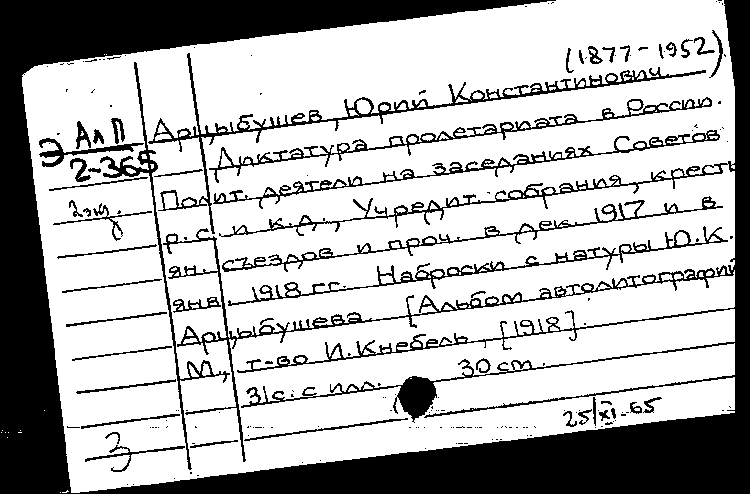 (1877-1952)
Э АлП
2-365
Арцыбушев, Юрий Константинович.
Диктатура пролетариата в России.
2 экз.
Полит. деятели на заседаниях Советов
р. с. и к. д., Учредит. собрания, кресть
ян. съездов и проч. в дек. 1917 и в
янв. 1918 гг. Наброски с натуры Ю.К.
Арцыбушева. [Альбом автолитографий
М., т-во И. Кнебель, [1918].
31 с. с илл. 30 cm.
3
25/XI-65